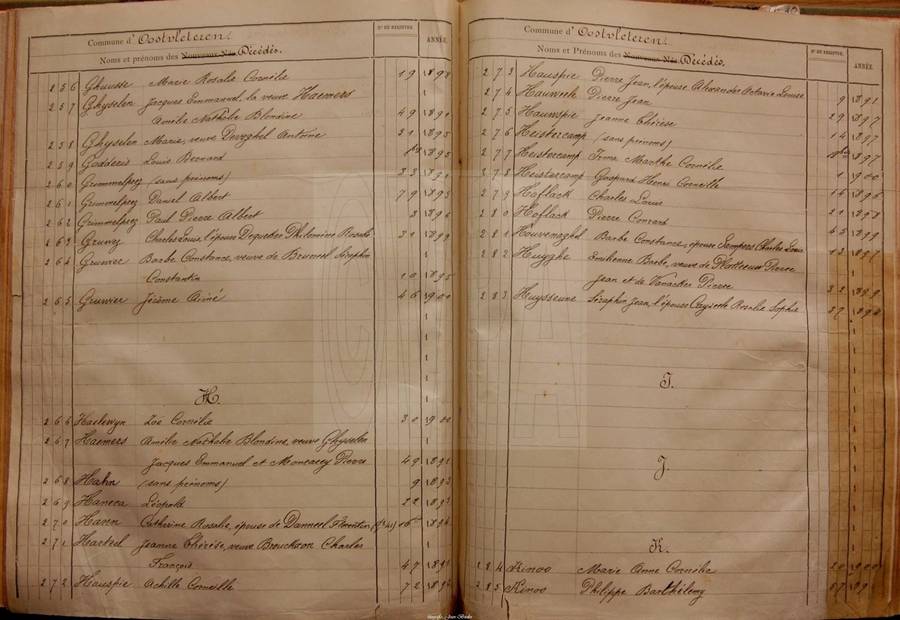 Commune d' Oostvleteren.
Noms et prénoms des Nouveaux-Nés Décédés.
N° DU REGISTRE.
ANNÉE.
256 Ghuusse Marie Rosalie Cornélie 19 1898
257 Ghyselen Jacques Emmanuel, la veuve Haemers
Amélie Nathalie Blondine 49 1891
258 Ghyselen Marie, veuve Antoine 31 1895
259 Godderis Louis Bernard 1895
260 Grimmelprez (sans prénoms) 33
261 Grimmelprez Daniel Albert 79 1893
262 Grimmelprez Paul Pierre Albert 1896
263 Gruwez Charles Louis, l'épouse Deguecker Philomène Rosalie 31 1899
264 Gruwier Barbe Constance, veuve de Bruneel Séraphin
Constantin 10 1895
265 Gruwier Jérôme Aimé 46 1900
H.
266 Haelewyn Zoë Cornélie 30 1900
267 Haemers Amélie Nathalie Blondine, veuve Ghyselen
Jacques Emmanuel et Moncarey Pierre 49 1891
268 Hahn (sans prénoms) 9 1893
269 Haneca Léopold 22 1893
270 Hann Catherine Rosalie, épouse de Danneel Florentin 1896
271 Harteel Jeanne Thérèse, veuve Charles
François 47 1891
272 Hauspie Achille Corneille 72
Commune d' Oostvleteren.
Noms et Prénoms des Nouveaux-Nés Décédés.
N° DU REGISTRE.
ANNÉE.
273 Hauspie Pierre Jean, l'épouse Alexander Octavie Louise 9 1891
274 Hauweth Pierre Jean 29 1897
275 Hauwspie Jeanne Thérèse 14 1897
276 Heistercamp (sans prénoms) 1897
277 Heistercamp Irma Marthe Cornélie 1 1900
278 Heistercamp Gaspard Henri Corneille 16 1896
279 Hoflack Charles Louis 21 1898
280 Hoflack Pierre Conrard 45 1899
281 Houvenaghel Barbe Constance, épouse Sampers Charles Louis 12 1897
282 Huyghe Emilienne Barbe, veuve de Pierre
Jean et de Vanacker Pierre 32 1899
283 Huyseune Séraphin Jean, l'épouse Rosalie Sophie 57 1898
I.
J.
K.
284 Kinoo Marie Anne Cornélie 20 1900
285 Kinoo Philippe Barthélémy 57 1899